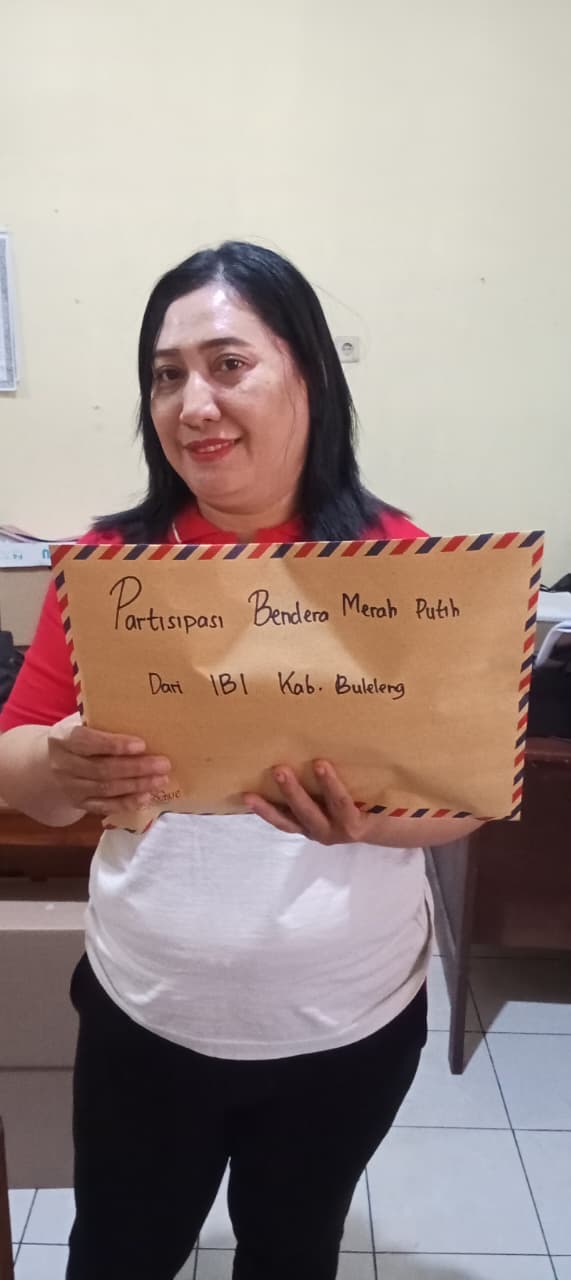 Partisipasi Bendera Merah Putih
Dari IBI Kab. Buleleng